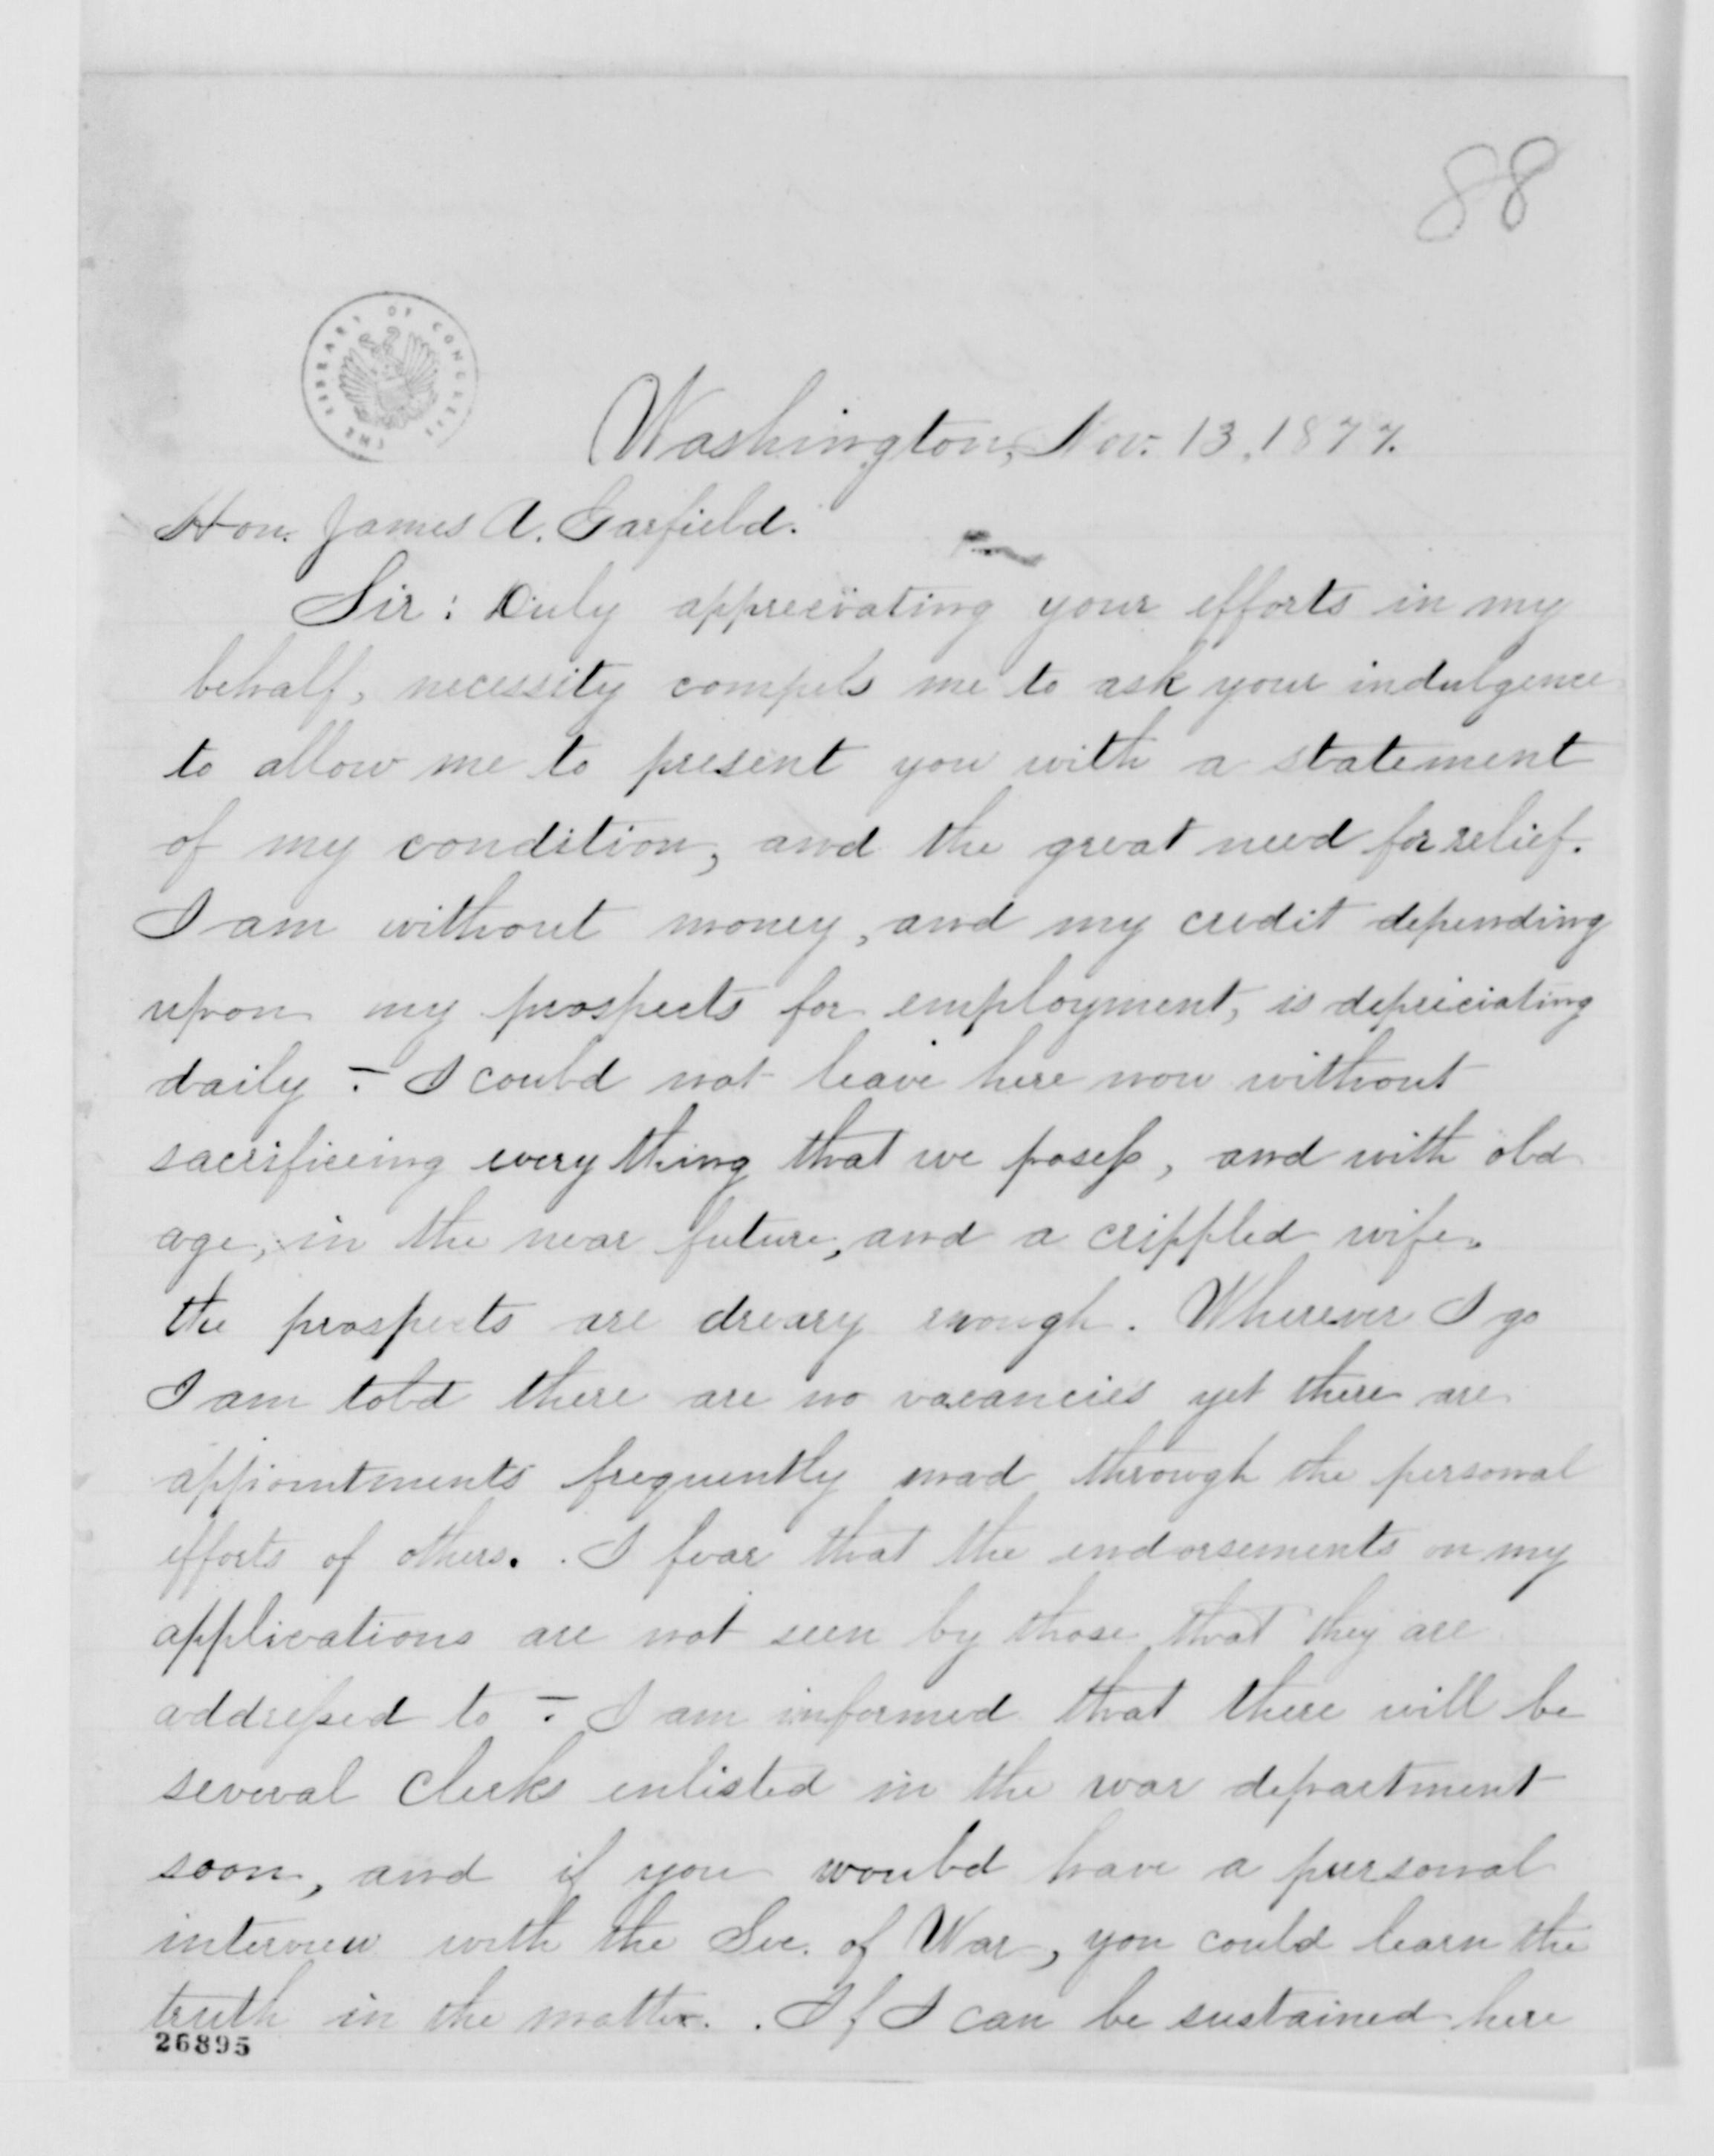 88
THE LIBRARY OF CONGRESS
Washington, Nov. 13, 1877.
Hon. James A. Garfield.
Sir: Duly appreciating your efforts in my
behalf, necessity compels me to ask your indulgence
to allow me to present you with a statement
of my condition, and the great need for relief.
I am without money, and my credit depending
upon my prospects for employment, is depreciating
daily - I could not leave here now without
sacrificing every thing that we posess, and with old
age, in the near future, and a crippled wife,
the prospects are dreary enough. Wherever I go
I am told there are no vacancies yet there are
appointments frequently mad through the personal
efforts of others. I fear that the endorsements on my
applications are not seen by those that they are
addressed to - I am informed that there will be
several clerks enlisted in the war department
soon, and if you would have a personal
interview with the Sec. of War, you could learn the
truth in the matter. If I can be sustained here
26895